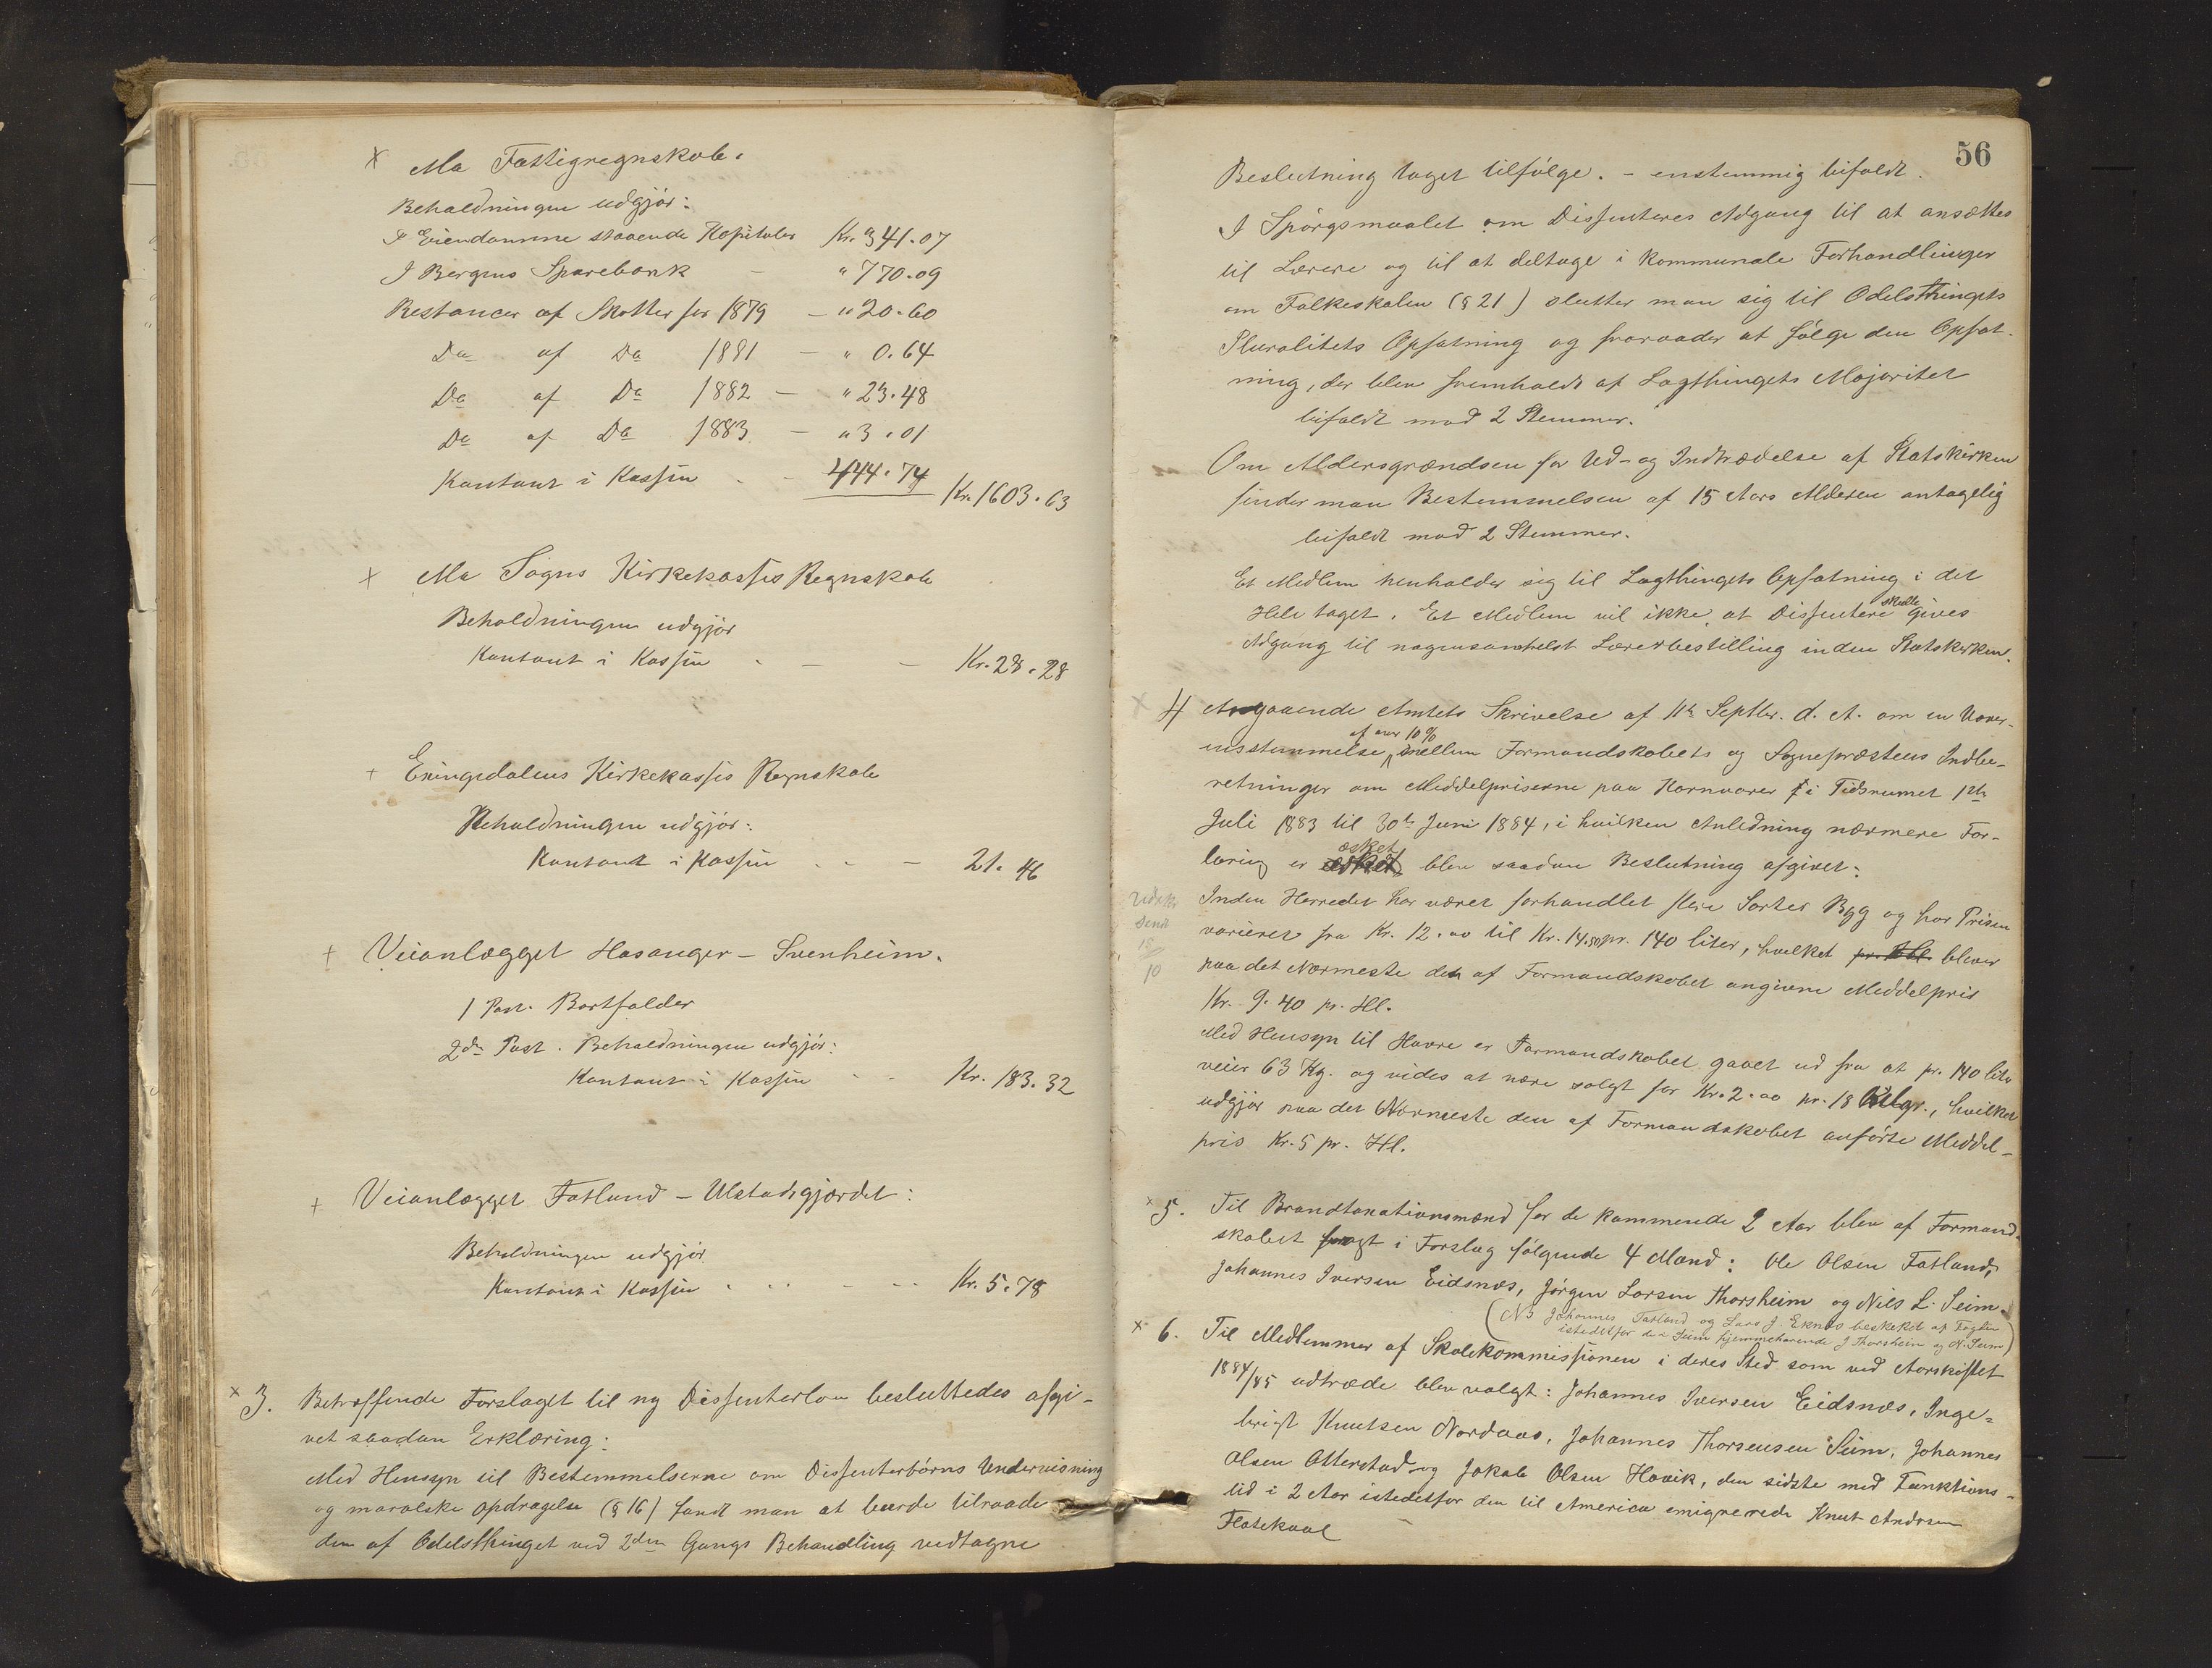 × Mo Fattigregnskab.
Beholdningen udgjør:
I Eiendomme staaende Kapitaler Kr. 341.07
I Bergens Sparebank – " 770.09
Restancer af Skatter for 1879 – " 20.60
Do af Do 1881 – " 0.64
Do af Do 1882 – " 23.48
Do af Do 1883 – " 3.01
Kontant i Kassen - - 444.74 Kr. 1603.63
× Mo Sogns Kirkekasses Regnskab
Beholdningen udgjør
Kontant i Kassen - – – Kr. 28.28
+ Eksingedalens Kirkekasses Regnskab
Beholdningen udgjør:
Kontant i Kassen - - – 21.46
+ Veianlægget Hosanger – Svenheim.
1 Post. Bortfalder
2den Post. Beholdningen udgjør:
Kontant i Kassen - - Kr. 183.32
+ Veianlægget Fatland – Ulstadsgjærdet:
Beholdningen udgjør
Kontant i Kassen - - - – - - Kr. 5.78
× 3. Betræffende Forslaget til ny Dissenterlov besluttedes afgi-
vet saadan Erklæring:
Med Hensyn til Bestemmelserne om Dissenterbørns Undervisning
og moralske Opdragelse (§ 16) fandt man at burde tilraade
den af Odelsthinget ved 2den Gangs Behandling vedtagne
56
Beslutning taget tilfølge. – enstemmig bifaldt.
I Spørgsmaalet om Dissenteres Adgang til at ansættes
til Lærere og til at deltage i kommunale Forhandlinger
om Folkeskolen (§ 21) slutter man sig til Odelsthingets
Pluralitets Opfatning og fraraader at følge den Opfat-
ning, der blev fremholdt af Lagthingets Majoritet
bifaldt mod 2 Stemmer.
Om Aldersgrændsen for Ud- og Indtrædelse af Statskirken
finder man Bestemmelsen af 15 Aars Alderen antagelig
bifaldt mod 2 Stemmer.
Et Medlem henholder sig til Lagthingets Opfatning i det
Hele taget. Et Medlem vil ikke at Dissentere skulle gives
Adgang til nogensomhelst Lærerbestilling inden Statskirken.
× 4 Angaaende Amtets Skrivelse af 11te Septbr. d. A. om en Uover-
ensstemmelse af over 10% mellem Formandskabets og Sognepræstens Indbe-
retninger om Middelpriserne paa Kornvarer i Tidsrumet 1ste
Juli 1883 til 30te Juni 1884, i hvilken Anledning nærmere For-
klaring er æsket blev saadan Beslutning afgivet:
Udskr
sendt
15/10
Inden Herredet har været forhandlet flere Sorter Byg og har Prisen
varieret fra Kr. 12.00 til Kr. 14.50 pr. 140 liter, hvilket pr. Hl. bliver
paa det Nærmeste den af Formandskabet angivne Middelpris
Kr. 9.40 pr. Hl.
Med Hensyn til Havre er Formandskabet gaaet ud fra at pr. 140 liter
veier 63 Kg. og vides at være solgt for Kr. 2.00 pr. 18 Kilgr., hvilket
udgjør paa det Nærmeste den af Formandskabet anførte Middel-
pris Kr. 5 pr. Hl.
× 5. Til Brandtaxationsmænd for de kommende 2 Aar blev af Formand-
skabet bragt i Forslag følgende 4 Mænd: Ole Olsen Fatland,
Johannes Iversen Eidsnes, Jørgen Larsen Thorsheim og Nils L. Seim.
(NB Johannes Fatland og Lars J. Eknes beskikket af Fogden
istedetfor de i Seim hjemmehørende J Thorsheim og N. Seim)
× 6. Til Medlemmer af Skolekommissionen i deres Sted som ved Aarskiftet
1884/85 udtræde blev valgt: Johannes Iversen Eidsnes, Inge-
brigt Knutsen Nordaas, Johannes Thorsensen Seim, Johannes
Olsen Otterstad og Jakob Olsen Hovik, den sidste med Funktions-
tid i 2 Aar istedetfor den til America emigrerede Knut Andersen
Flatekval